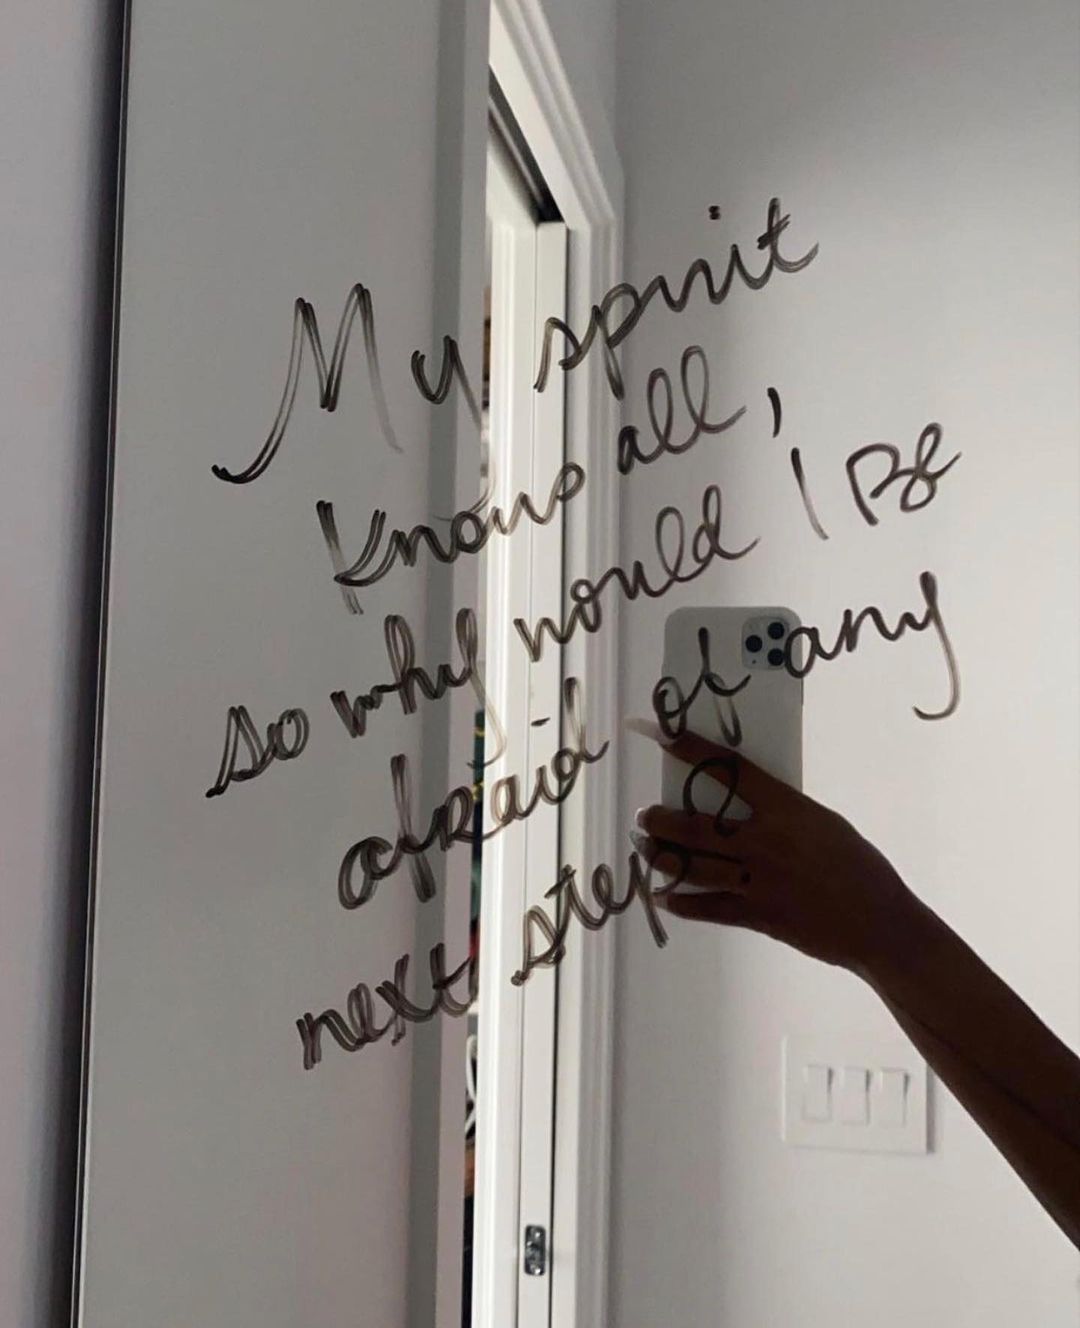 My spirit
knows all,
so why would I Be
afraid of any
next step?